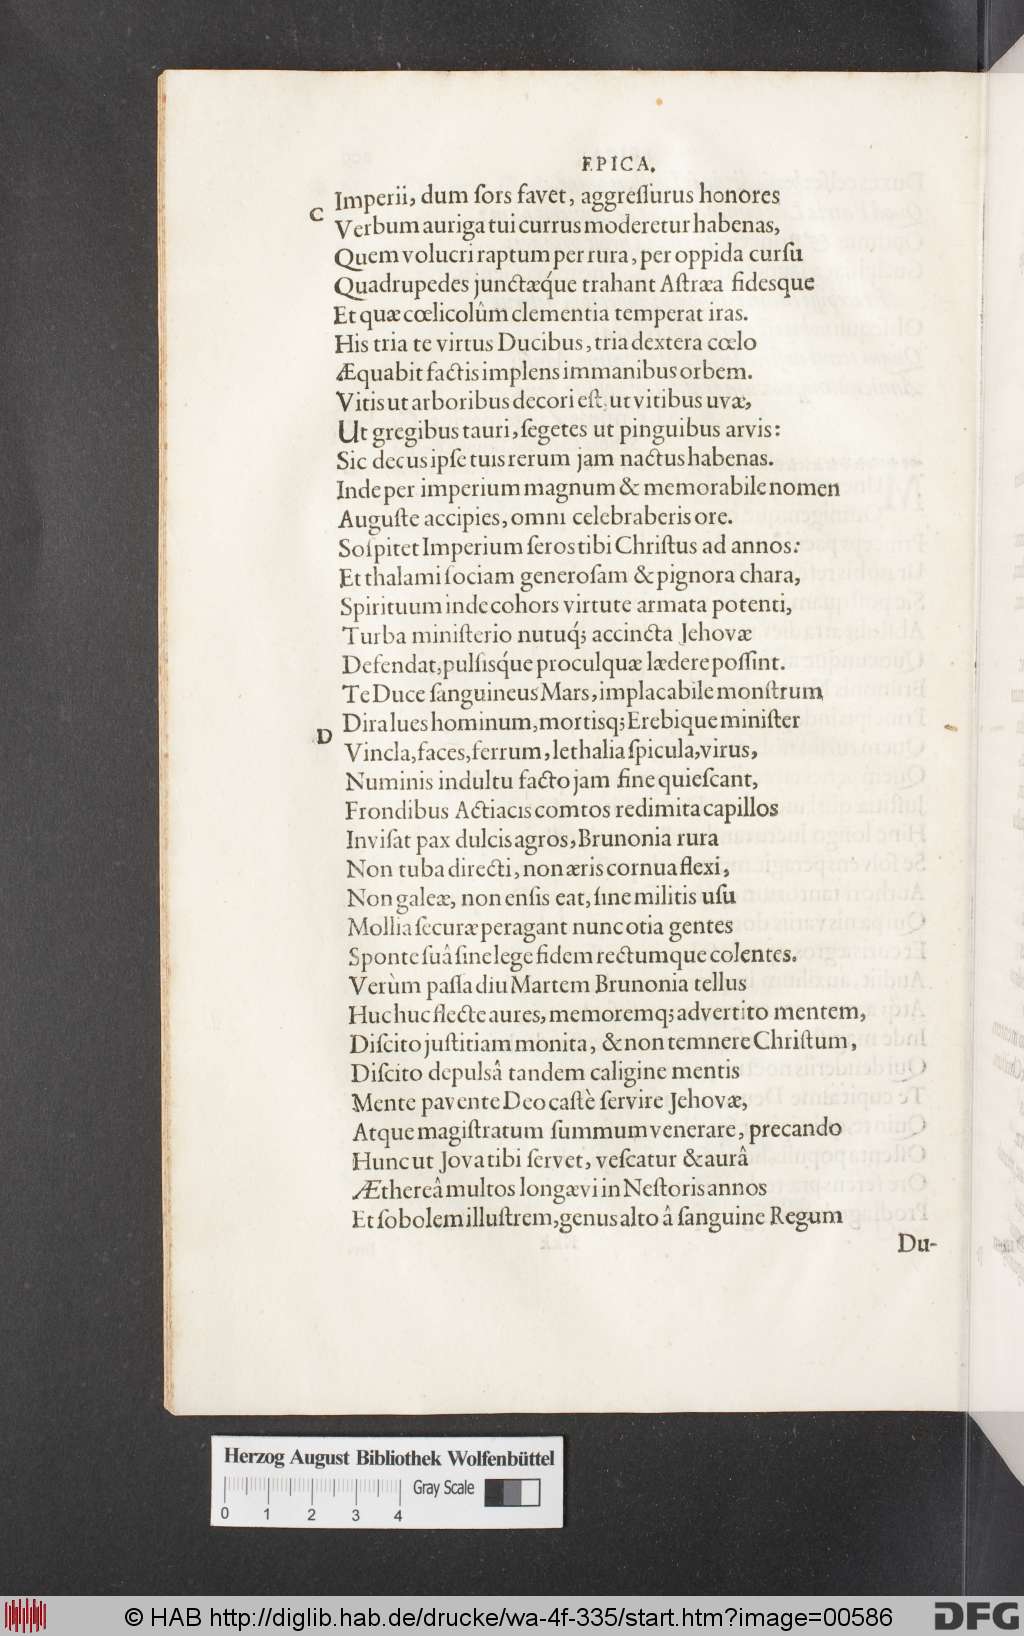 EPICA.
Imperii, dum ſors favet, aggreſſurus honores
C
Verbum auriga tui currus moderetur habenas,
Quem volucri raptum per rura, per oppida curſu
Quadrupedes junctæq́ue trahant Aſtræa fidesque
Et quæ cœlicolûm clementia temperat iras.
His tria te virtus Ducibus, tria dextera cœlo
Æquabit factis implens immanibus orbem.
Vitis ut arboribus decori eſt, ut vitibus uvæ,
Ut gregibus tauri, ſegetes ut pinguibus arvis:
Sic decus ipſe tuis rerum jam nactus habenas.
Inde per imperium magnum & memorabile nomen
Auguſte accipies, omni celebraberis ore.
Soſpitet Imperium ſeros tibi Chriſtus ad annos:
Et thalami ſociam generoſam & pignora chara,
Spirituum inde cohors virtute armata potenti,
Turba miniſterio nutuq́; accincta Jehovæ
Defendat, pulſisq́ue procul quæ lædere poſſint.
Te Duce ſanguineus Mars, implacabile monſtrum
Dira lues hominum, mortisq; Erebique miniſter
D
Vincla, faces, ferrum, lethalia ſpicula, virus,
Numinis indultu facto jam fine quieſcant,
Frondibus Actiacis comtos redimita capillos
Inviſat pax dulcis agros, Brunonia rura
Non tuba directi, non æris cornua flexi,
Non galeæ, non enſis eat, ſine militis uſu
Mollia ſecuræ peragant nunc otia gentes
Sponte ſuâ ſine lege fidem rectumque colentes.
Verùm paſſa diu Martem Brunonia tellus
Huc huc flecte aures, memoremq; advertito mentem,
Diſcito juſtitiam monita, & non temnere Chriſtum,
Diſcito depulsâ tandem caligine mentis
Mente pavente Deo caſtè ſervire Jehovæ,
Atque magiſtratum ſummum venerare, precando
Hunc ut Jova tibi ſervet, veſcatur & aurâ
Æthereâ multos longævi in Neſtoris annos
Et ſobolem illuſtrem, genus alto â ſanguine Regum
Du-
Herzog August Bibliothek Wolfenbüttel
Gray Scale
0 1 2 3 4
© HAB http://diglib.hab.de/drucke/wa-4f-335/start.htm?image=00586
DFG